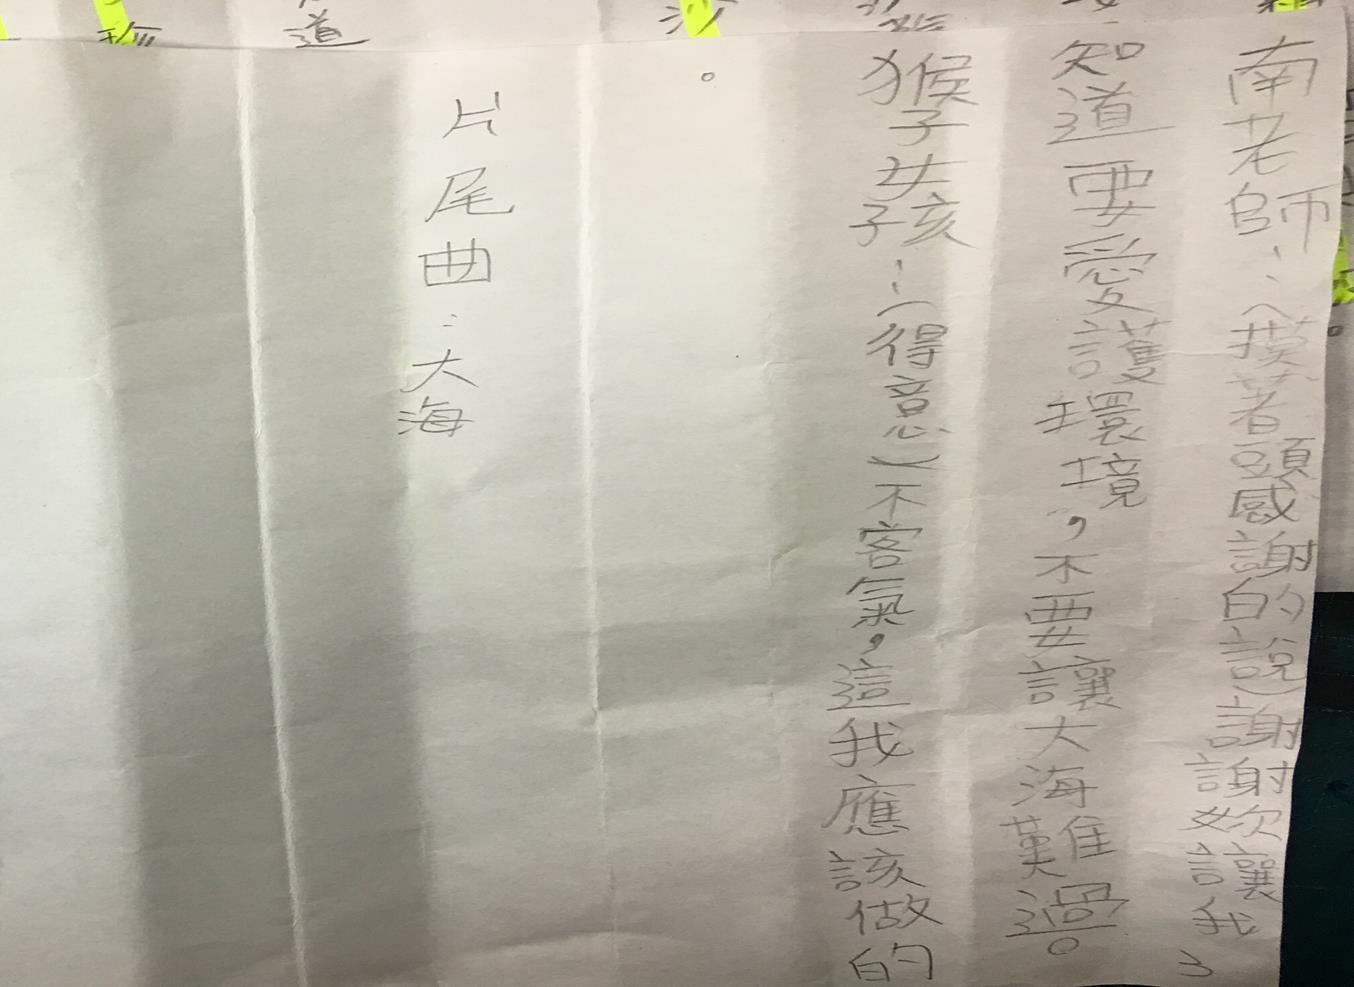 南老師：（摸著頭感謝的說）謝謝妳讓我了
知道要愛護環境，不要讓大海難過。
猴子女孩：（得意）不客氣，這我應該做的
。
片尾曲：大海
道
沙